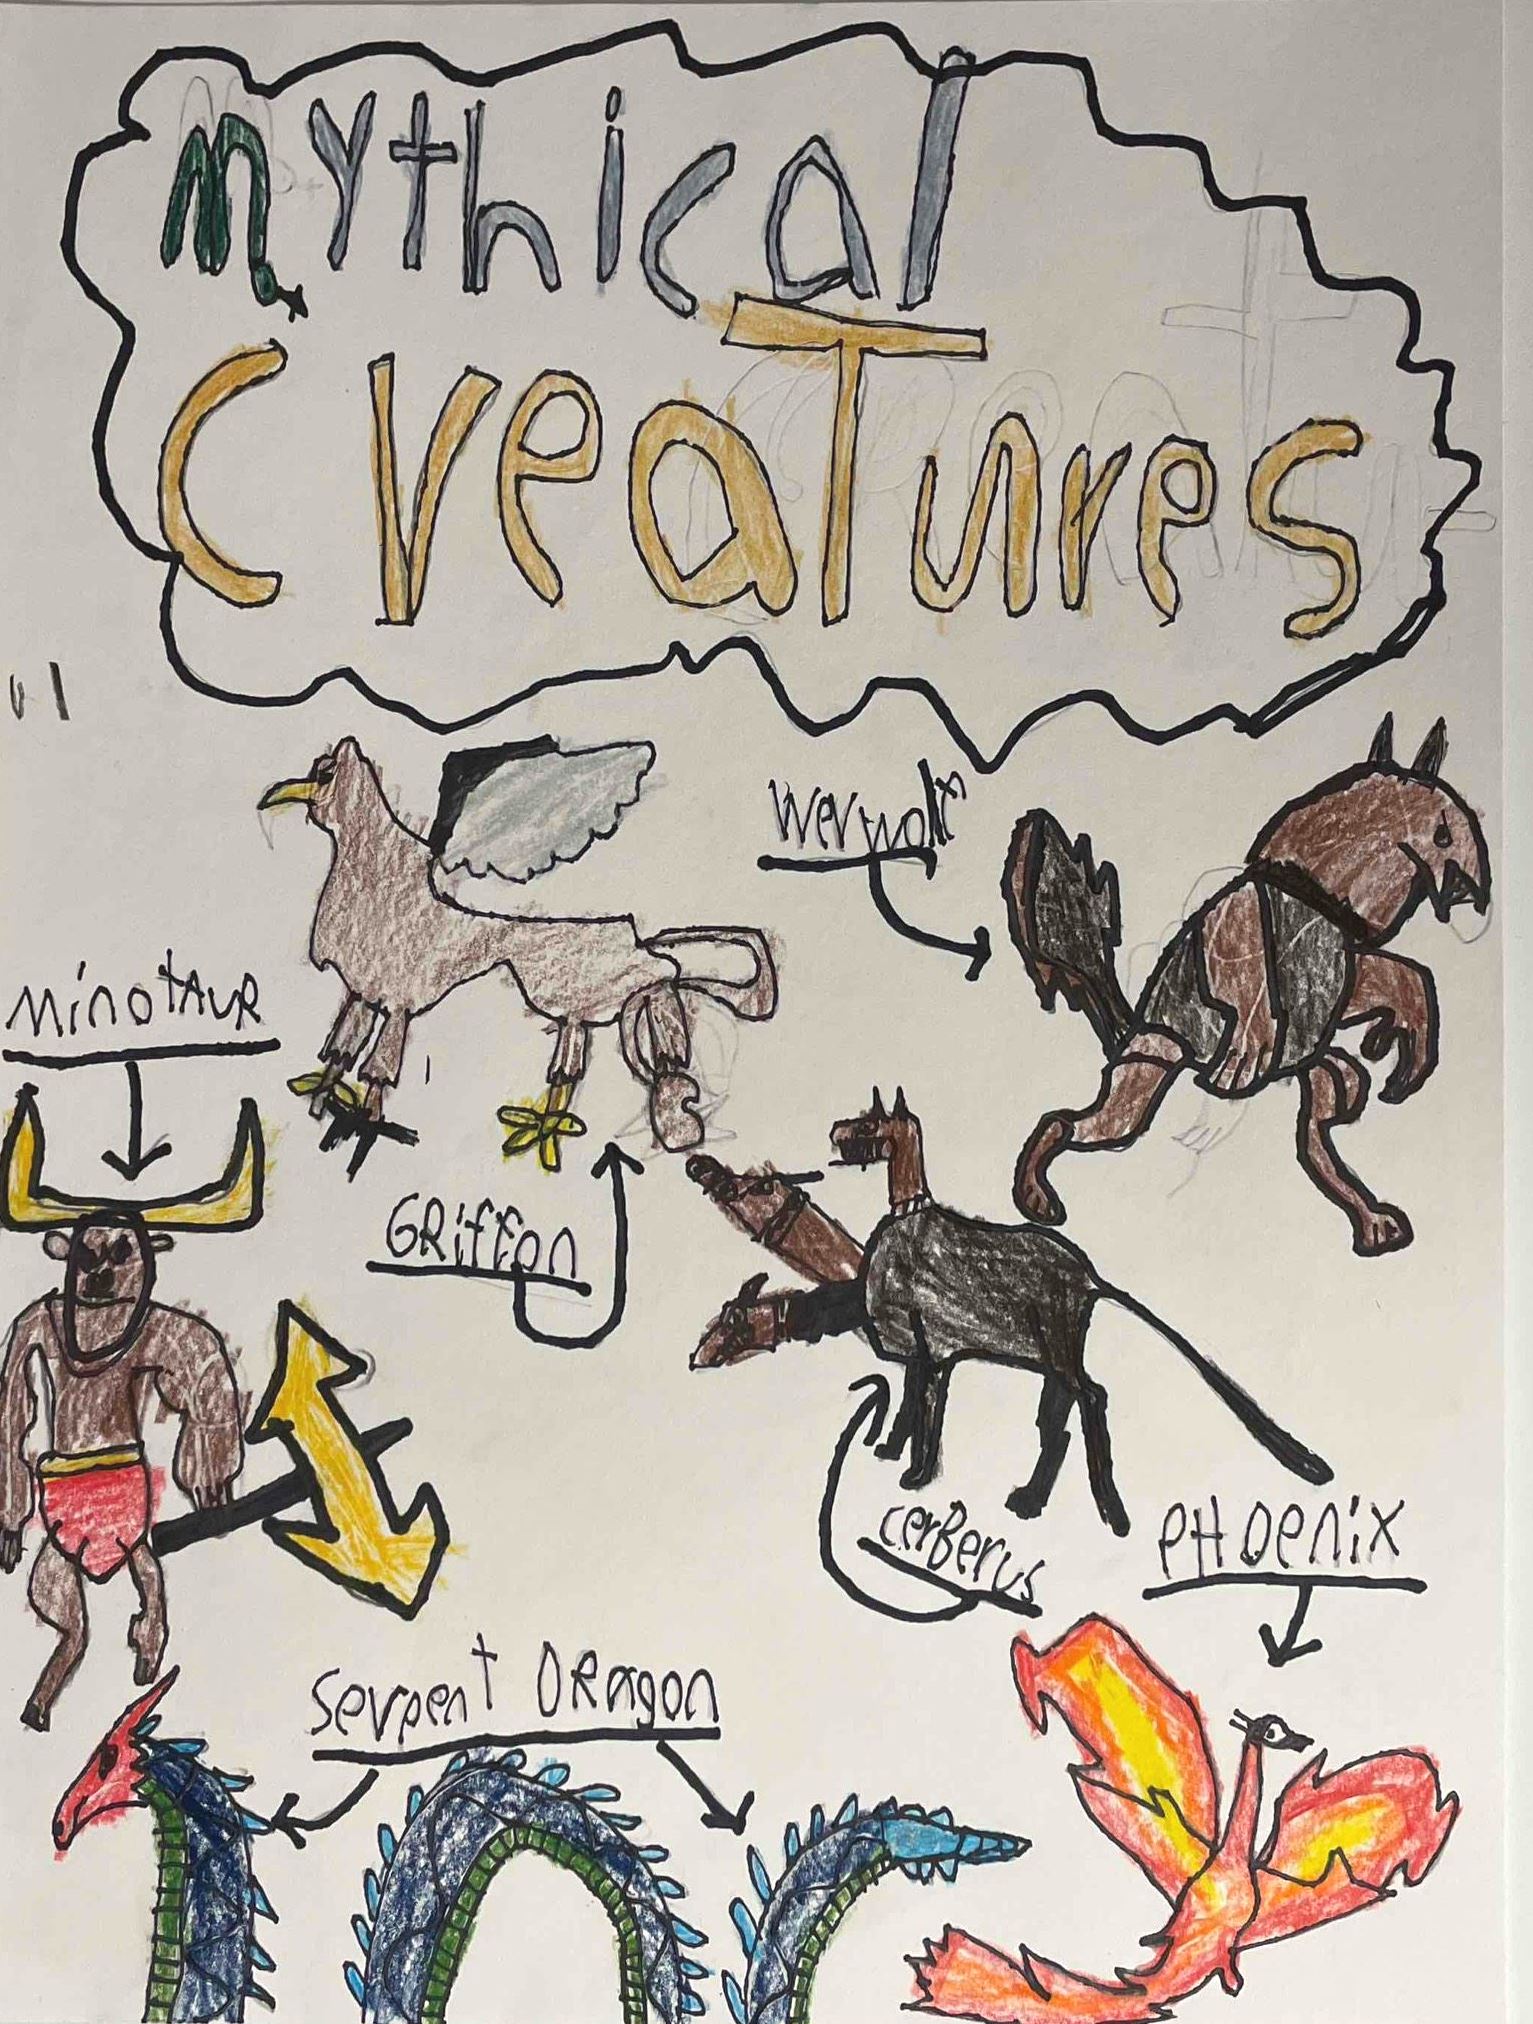 Mythical
CreaTures
Werwolf
MinotAuR
GRiffon
cerBerus
PHOenix
Serpent DRagon